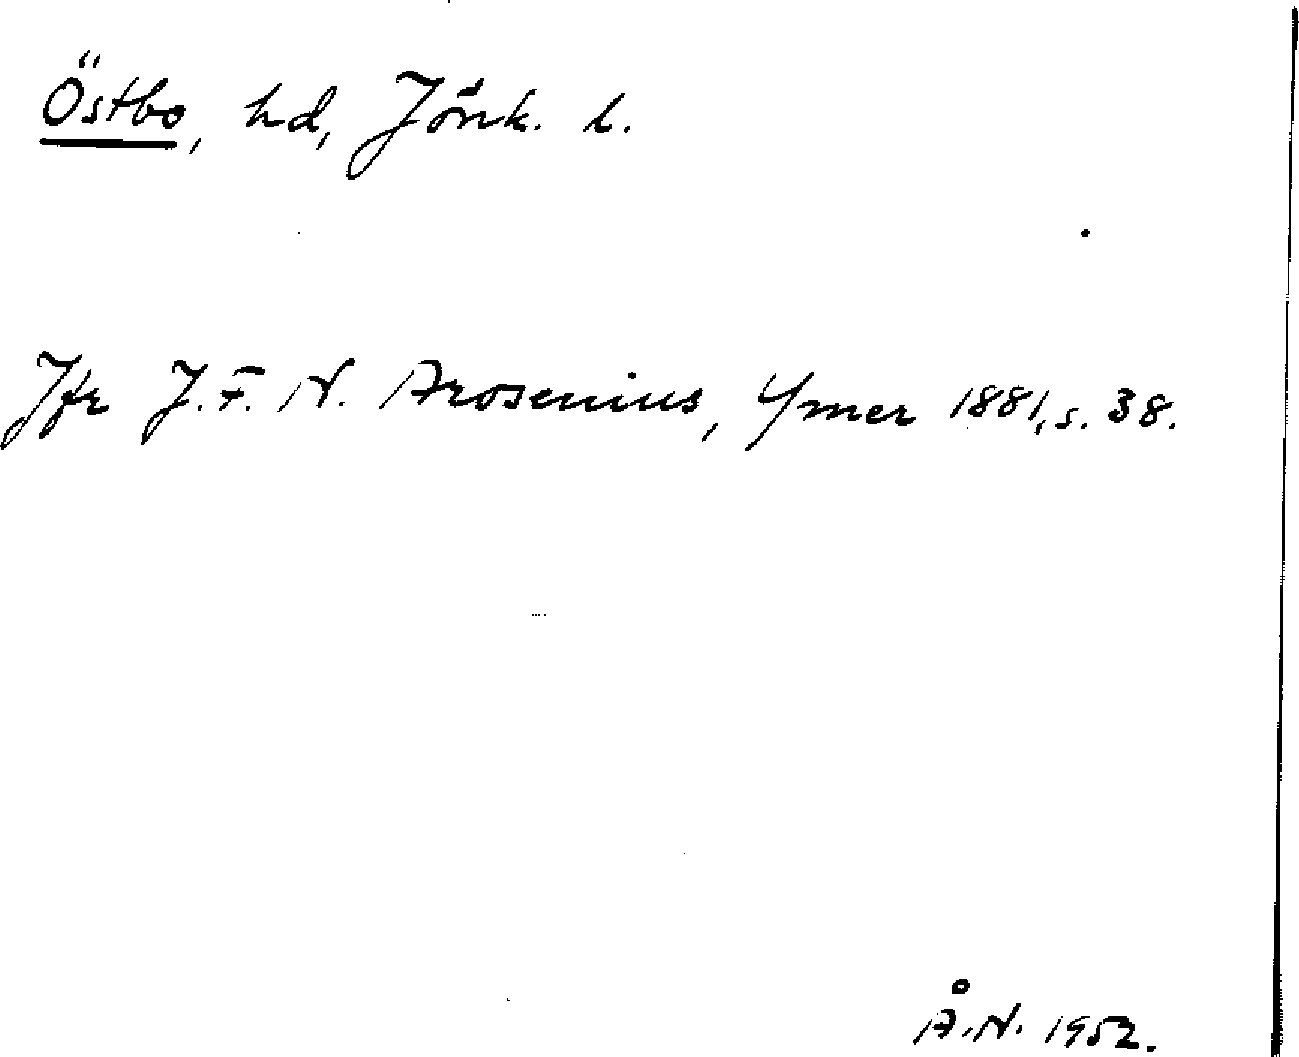 Östbo, hd, Jönk. l.
Jfr J. F. N. Arosenius, Ymer 1881, s. 38.
Å. N. 1952.